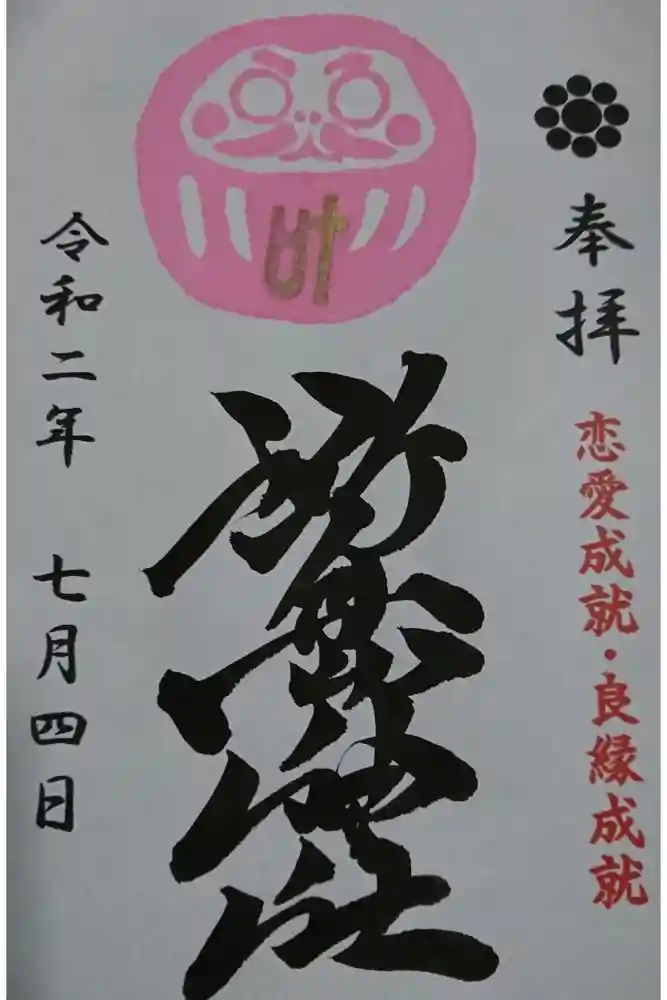 奉拝
恋愛成就・良縁成就
叶
神社
令和二年 七月四日